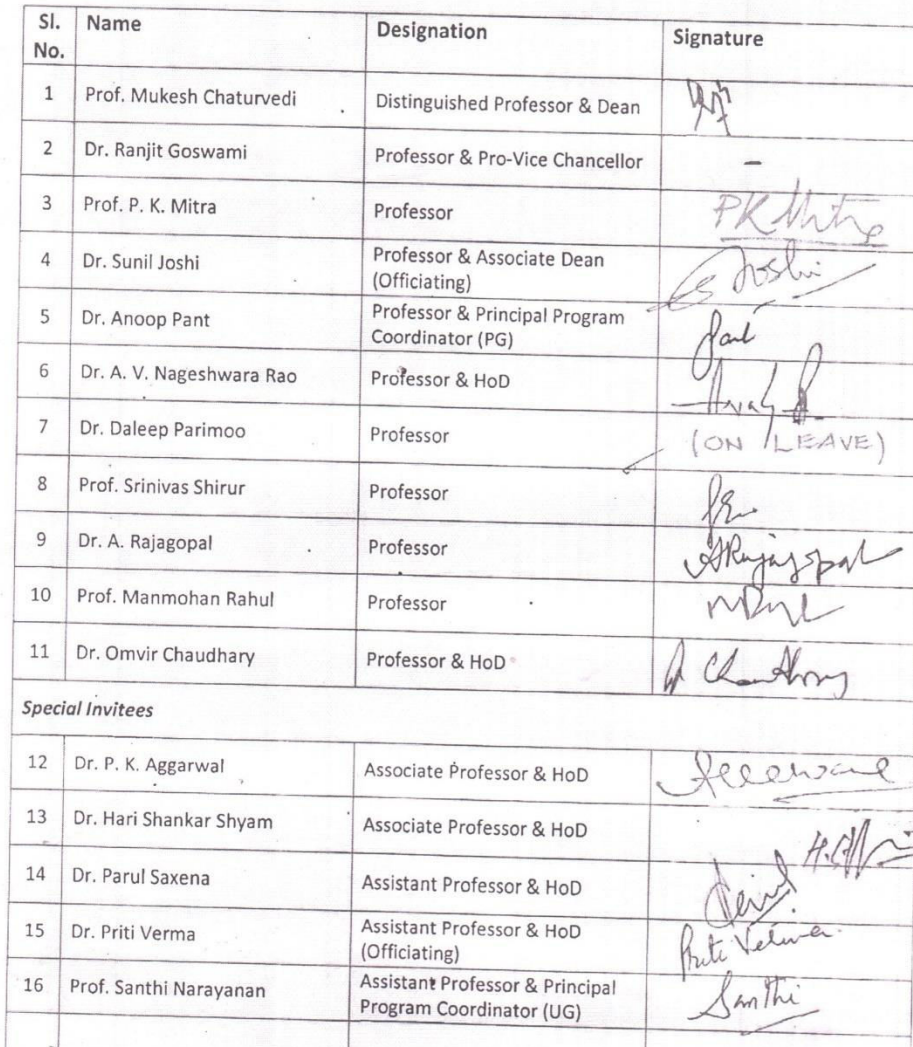 Sl. No. Name Designation Signature
1 Prof. Mukesh Chaturvedi Distinguished Professor & Dean
2 Dr. Ranjit Goswami Professor & Pro-Vice Chancellor –
3 Prof. P. K. Mitra Professor PK Mitra
4 Dr. Sunil Joshi Professor & Associate Dean (Officiating) Joshi
5 Dr. Anoop Pant Professor & Principal Program Coordinator (PG) Pant
6 Dr. A. V. Nageshwara Rao Professor & HoD
7 Dr. Daleep Parimoo Professor (ON LEAVE)
8 Prof. Srinivas Shirur Professor
9 Dr. A. Rajagopal Professor ARajagopal
10 Prof. Manmohan Rahul Professor
11 Dr. Omvir Chaudhary Professor & HoD
Special Invitees
12 Dr. P. K. Aggarwal Associate Professor & HoD
13 Dr. Hari Shankar Shyam Associate Professor & HoD
14 Dr. Parul Saxena Assistant Professor & HoD
15 Dr. Priti Verma Assistant Professor & HoD (Officiating) Priti Verma
16 Prof. Santhi Narayanan Assistant Professor & Principal Program Coordinator (UG) Santhi